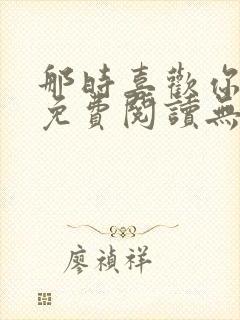 那時喜歡你
免費閱讀無
廖禎祥